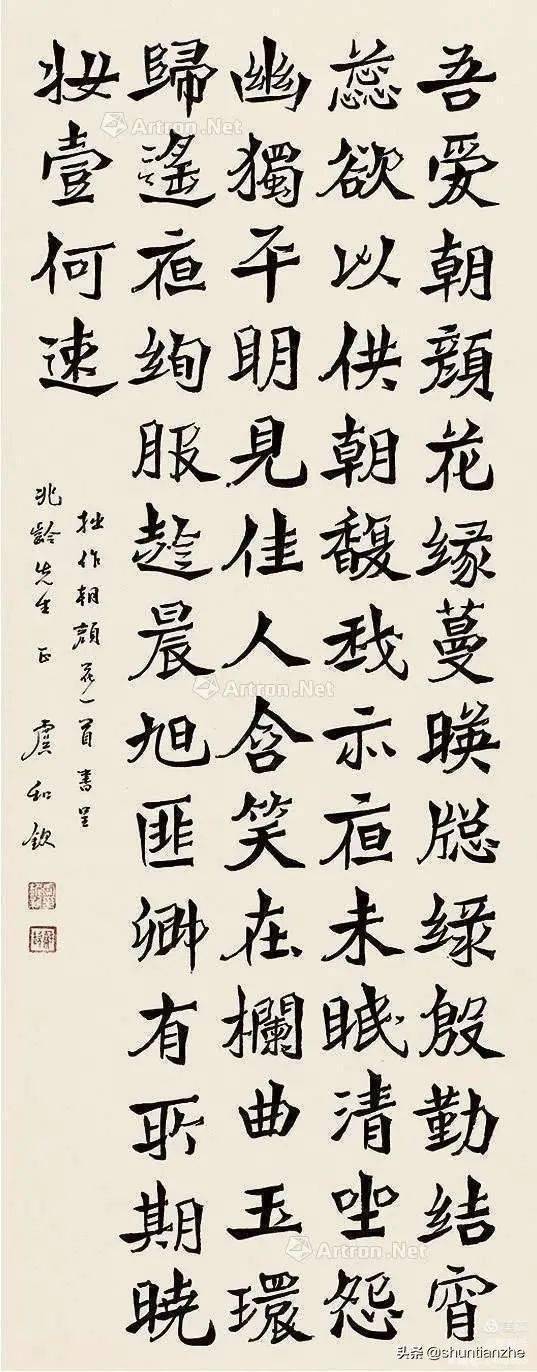 吾爱朝顔花缘蔓暎牕绿殷勤结宵
蕊欲以供朝馥我示夜未眠清坐怨
幽獨平明見佳人含笑在欄曲玉環
歸遥夜绚服趁晨旭匪卿有所期晓
妝壹何速
拙作朝顔花一首書呈
兆齡先生正 虞和钦
Artron.Net
Artron.Net
Artron.Net
头条 @shuntianzhe